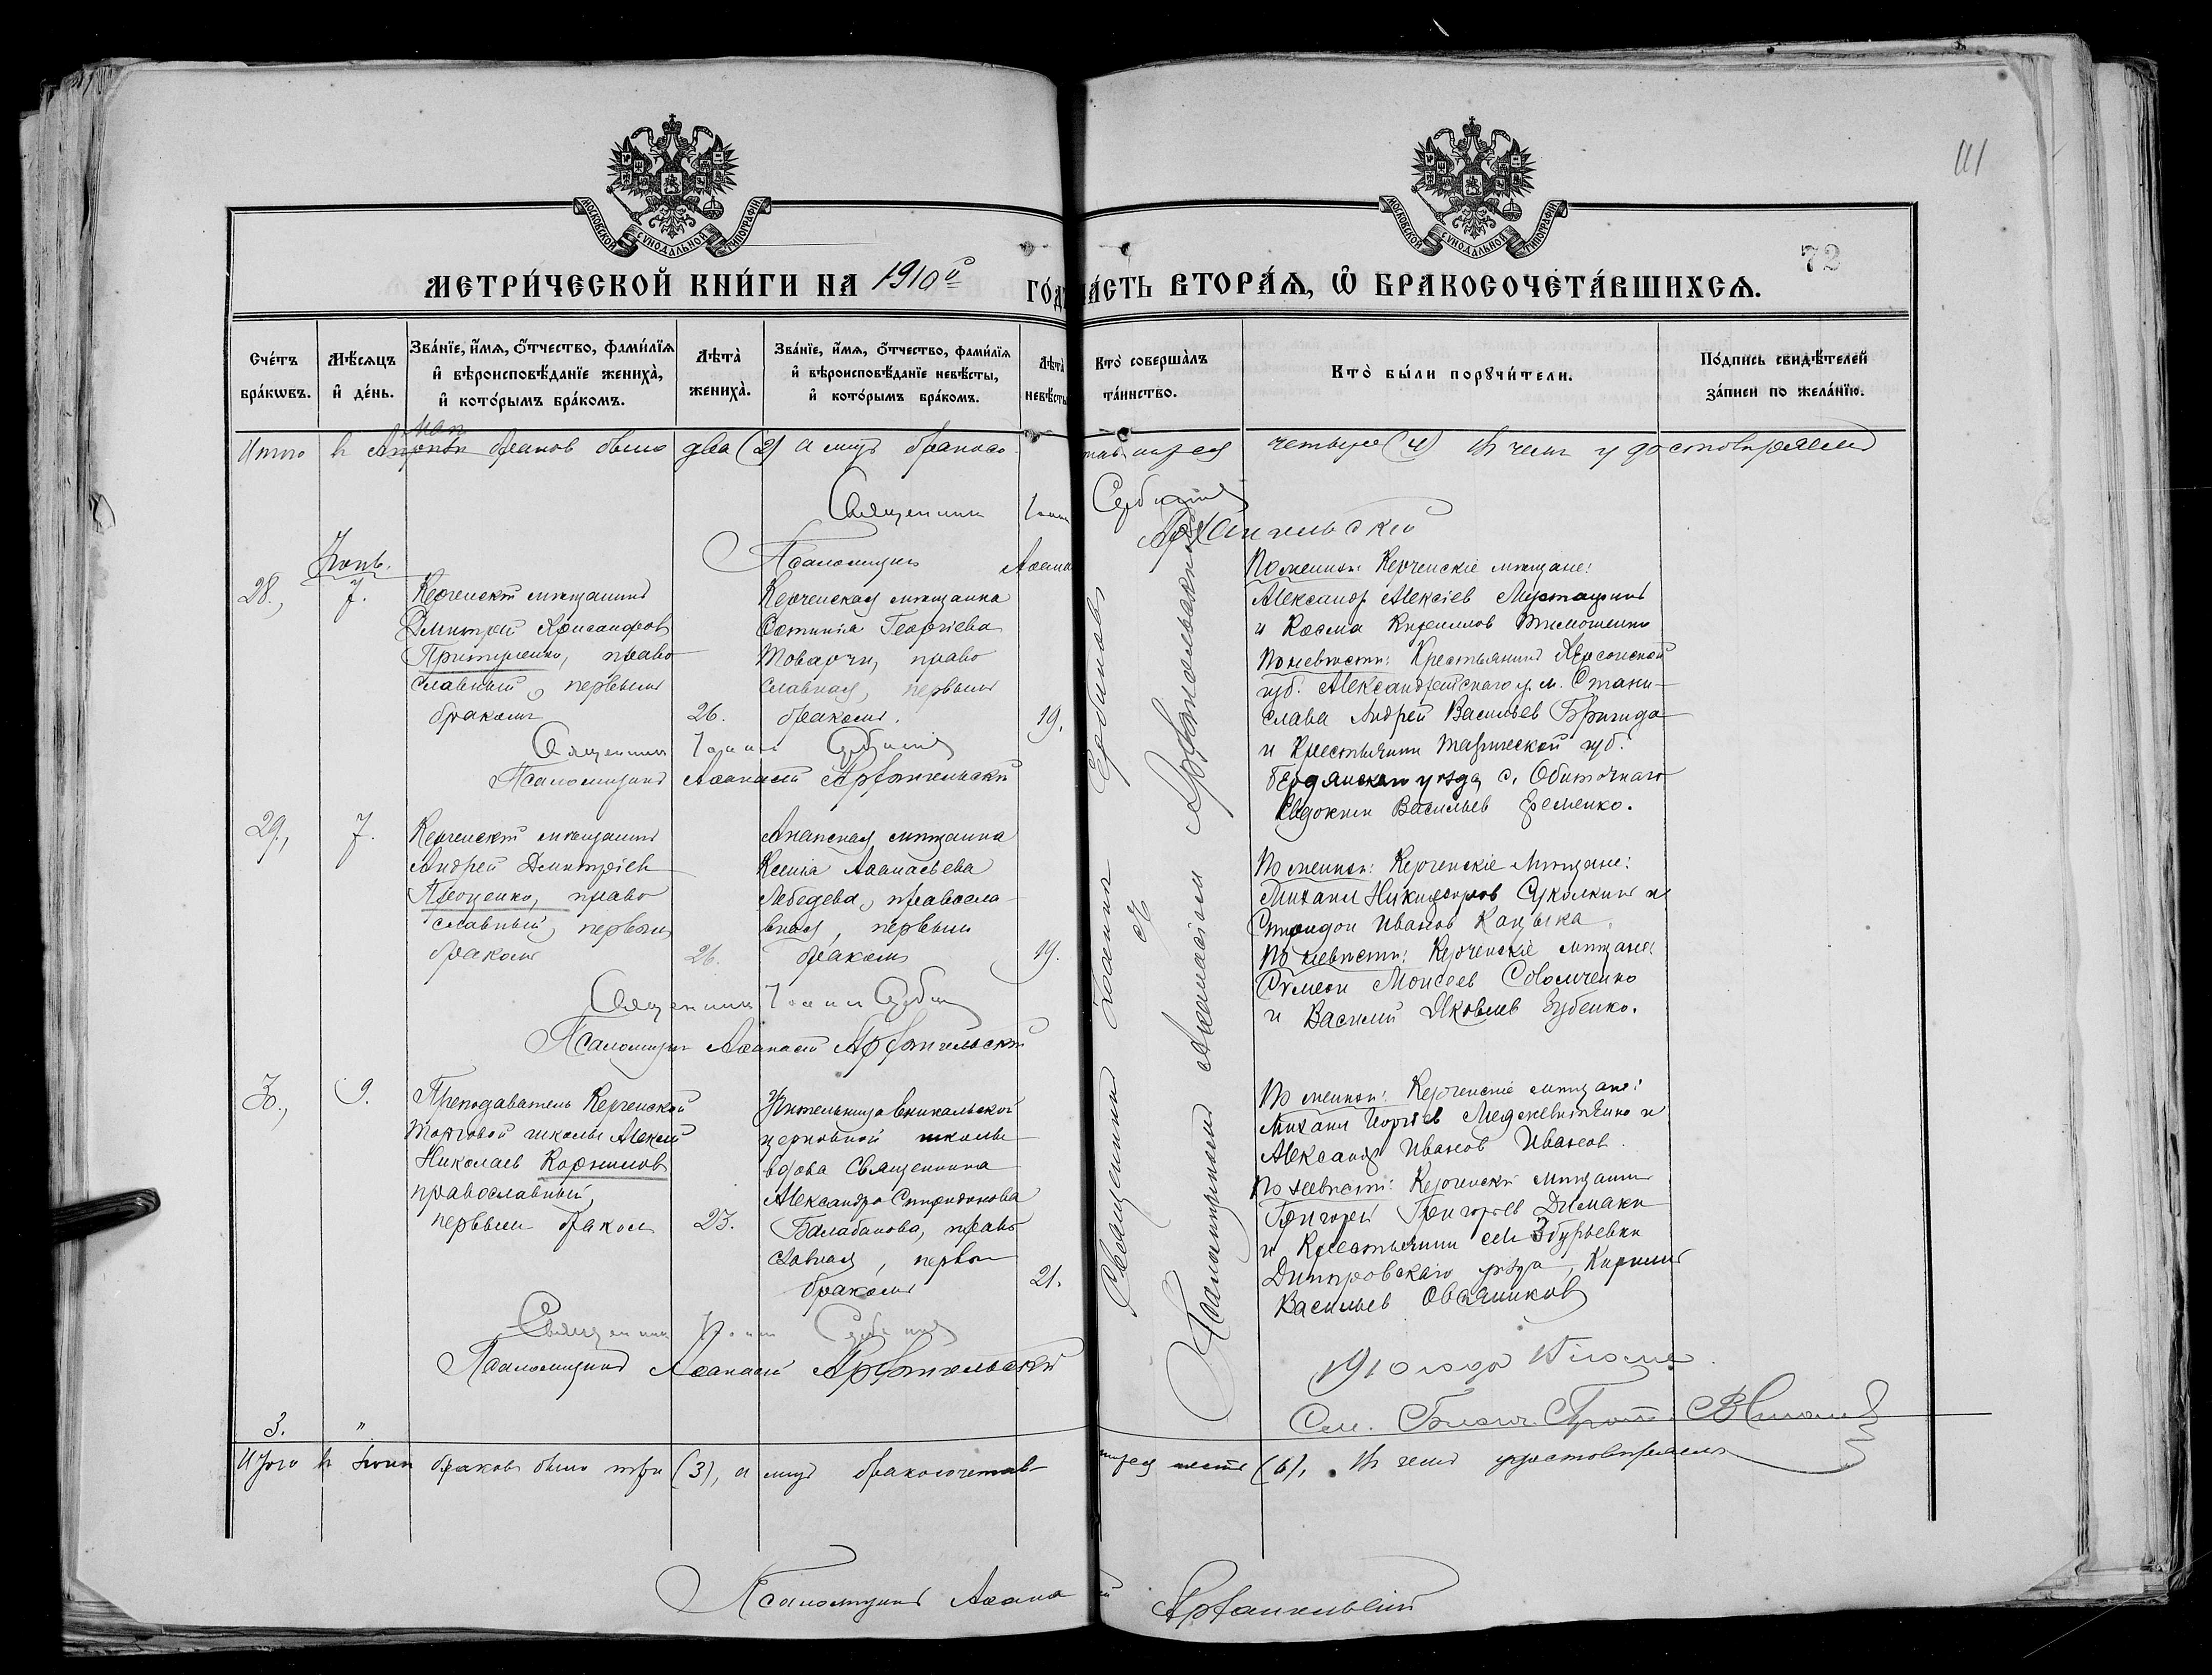 111
72
МОСКОВСКОЙ СУНОДАЛЬНОЙ ТИПОГРАФІИ
МОСКОВСКОЙ СУНОДАЛЬНОЙ ТИПОГРАФІИ
МЕТРИ́ЧЕСКОЙ КНИ́ГИ НА 1910й ГО́Д
ЧА́СТЬ ВТОРА́Ѧ, Ѿ БРАКОСОЧЕТА́ВШИХСѦ.
Сче́тъ бра́кѡвъ.
Мѣ́сѧцъ и҆ де́нь.
Зва́нїе, и҆́мѧ, ѻ҆́тчество, фами́лїѧ и҆ вѣроисповѣ́данїе жениха̀, и҆ кото́рымъ бра́комъ.
Лѣта̀ жениха̀.
Зва́нїе, и҆́мѧ, ѻ҆́тчество, фами́лїѧ и҆ вѣроисповѣ́данїе невѣ́сты, и҆ кото́рымъ бра́комъ.
Лѣта̀ невѣ́сты
Кто̀ соверша̀лъ та́инство.
Кто̀ бы́ли порꙋчи́тели.
По́дпись свидѣ́телей за́писи по жела́нїю.
Итого в браков было два (2) а лиц бракосо
четыре (4) въ чемъ удостовѣряемъ
Священникъ Іоанн Сербинов
Псаломщикъ Аѳана Архангельскій
Іюнь.
28., 7.
Керченскій мѣщанинъ
Дмитрій Хрисанфов
православный, первымъ
бракомъ
26.
Керченская мѣщанка
Георгіева
Товарчи, православная, первымъ
бракомъ.
19.
По женихѣ: Керченскіе мѣщане:
Александр Алексіев
и Косма Кириллов Тимошенко
По невѣстѣ: Крестьянинъ Херсонской
губ. м. Станислава Андрей Васильев Бригида
и Крестьянин Таврической губ.
Бердянскаго уѣзда, с. Обиточнаго
Евдоким Васильев Еременко.
Священникъ Іоанн Сербинов
Псаломщикъ Аѳанасій Архангельскій
29., 7.
Керченскій мѣщанинъ
Андрей Дмитріев
Проценко, православный, первымъ
бракомъ
26.
Анапская мѣщанка
Ксенія Аѳанасьева
Лебедева, православная, первымъ
бракомъ
19.
По женихѣ: Керченскіе Мѣщане:
Михаил Никифоров Сукалкин и
Спиридон Иванов Кацыка.
По невѣстѣ: Керченскіе мѣщане:
Симеон Моисеев
и Василій Яковлев Зубенко.
Священникъ Іоанн Сербинов
Псаломщикъ Аѳанасій Архангельскій
30., 9.
Преподаватель Керченской
Торговой школы Алексій
Николаев Корнилов
православный,
первымъ браком
23.
Учительница Еникальской
церковной школы
вдова Священника
Александра Спиридонова
Балабанова, православная, первым
бракомъ
21.
По женихѣ: Керченскіе мѣщане:
Михаил Георгіев и
Александр Иванов Иванов.
По невѣстѣ: Керченскій мѣщанин
Григорій Григорьев Димаки
и Крестьянин сел. Збурьевки
Днѣпровскаго уѣзда, Кирилл
Васильев Овсянников
Священникъ Іоанн Сербинов
Псаломщикъ Аѳанасій Архангельскій
Священникъ Іоанн Сербинов
съ
Псаломщикомъ Аѳанасіем Архангельскимъ
1910 года
3. "
Итого в Іюнѣ браков было три (3), а лицъ бракосочетавшихся шесть (6), Въ чемъ удостовѣряемъ
Псаломщикъ Аѳанасій Архангельскій